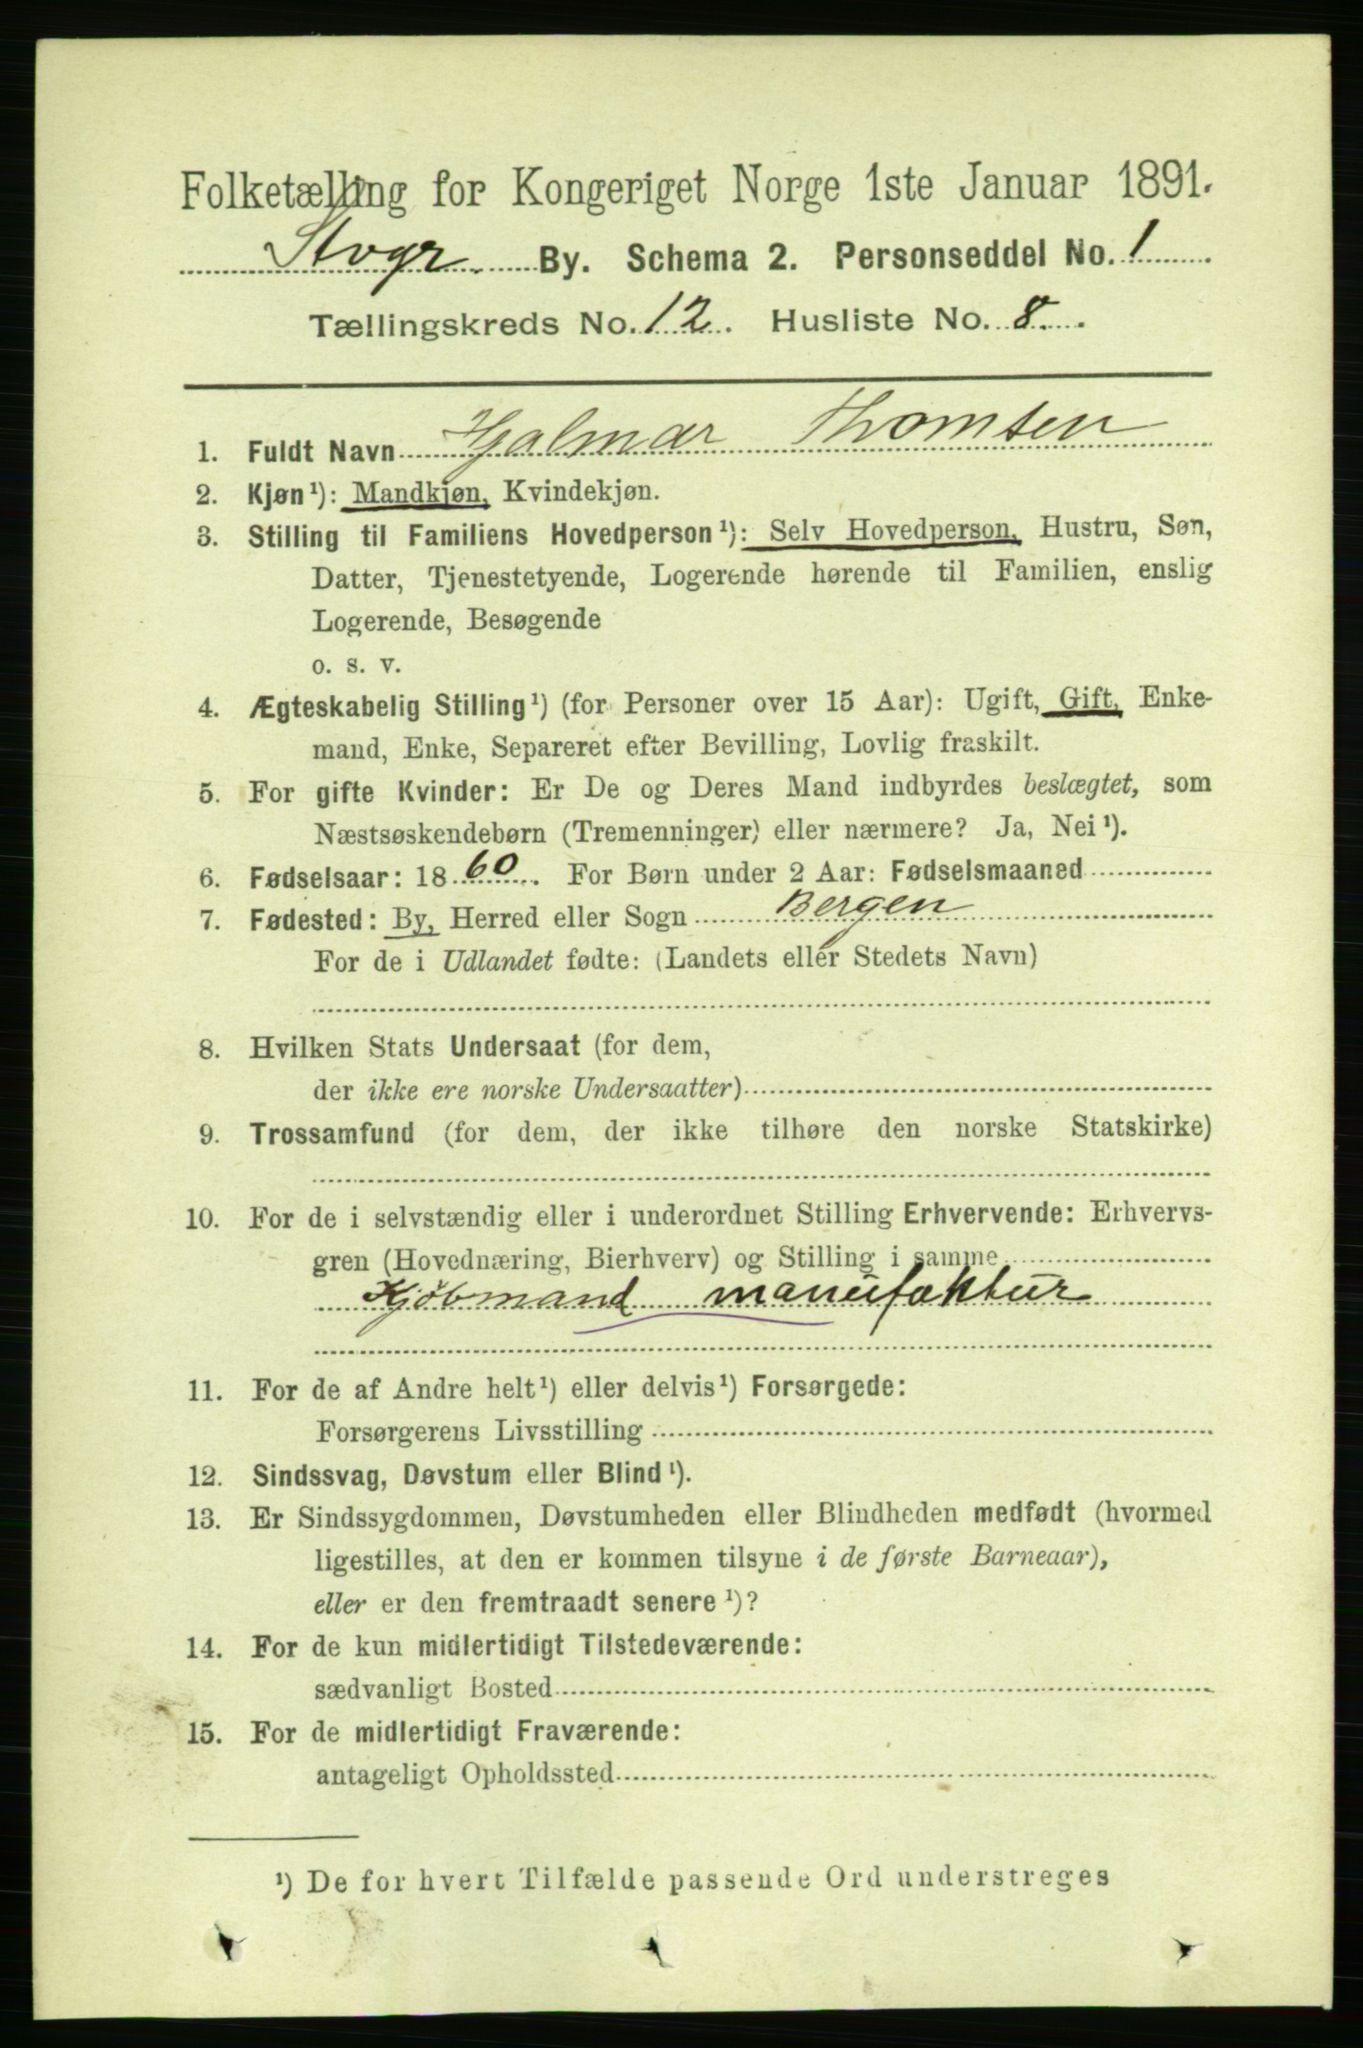 Folketælling for Kongeriget Norge 1ste Januar 1891.
Stvgr. By. Schema 2. Personseddel No. 1
Tællingskreds No. 12. Husliste No. 8.
1. Fuldt Navn Hjalmar Thomsen
2. Kjøn¹): Mandkjøn, Kvindekjøn.
3. Stilling til Familiens Hovedperson¹): Selv Hovedperson, Hustru, Søn,
Datter, Tjenestetyende, Logerende hørende til Familien, enslig
Logerende, Besøgende
o. s. v.
4. Ægteskabelig Stilling¹) (for Personer over 15 Aar): Ugift, Gift, Enke-
mand, Enke, Separeret efter Bevilling, Lovlig fraskilt.
5. For gifte Kvinder: Er De og Deres Mand indbyrdes beslægtet, som
Næstsøskendebørn (Tremenninger) eller nærmere? Ja, Nei¹).
6. Fødselsaar: 1860. For Børn under 2 Aar: Fødselsmaaned
7. Fødested: By, Herred eller Sogn Bergen
For de i Udlandet fødte: (Landets eller Stedets Navn)
8. Hvilken Stats Undersaat (for dem,
der ikke ere norske Undersaatter)
9. Trossamfund (for dem, der ikke tilhøre den norske Statskirke)
10. For de i selvstændig eller i underordnet Stilling Erhvervende: Erhvervs-
gren (Hovednæring, Bierhverv) og Stilling i samme
Kjøbmand manufaktur
11. For de af Andre helt¹) eller delvis¹) Forsørgede:
Forsørgerens Livsstilling
12. Sindssvag, Døvstum eller Blind¹).
13. Er Sindssygdommen, Døvstumheden eller Blindheden medfødt (hvormed
ligestilles, at den er kommen tilsyne i de første Barneaar),
eller er den fremtraadt senere¹)?
14. For de kun midlertidigt Tilstedeværende:
sædvanligt Bosted
15. For de midlertidigt Fraværende:
antageligt Opholdssted
¹) De for hvert Tilfælde passende Ord understreges